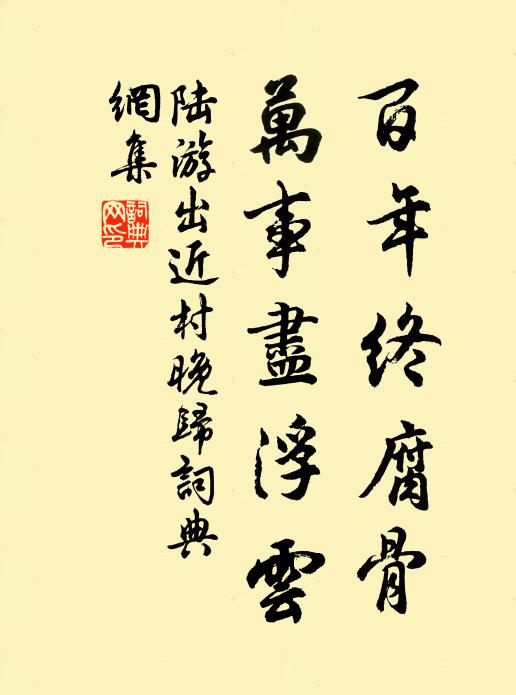 百年終腐骨
萬事盡浮雲
陆游出近村晚歸詞典
網集
詞典
网印